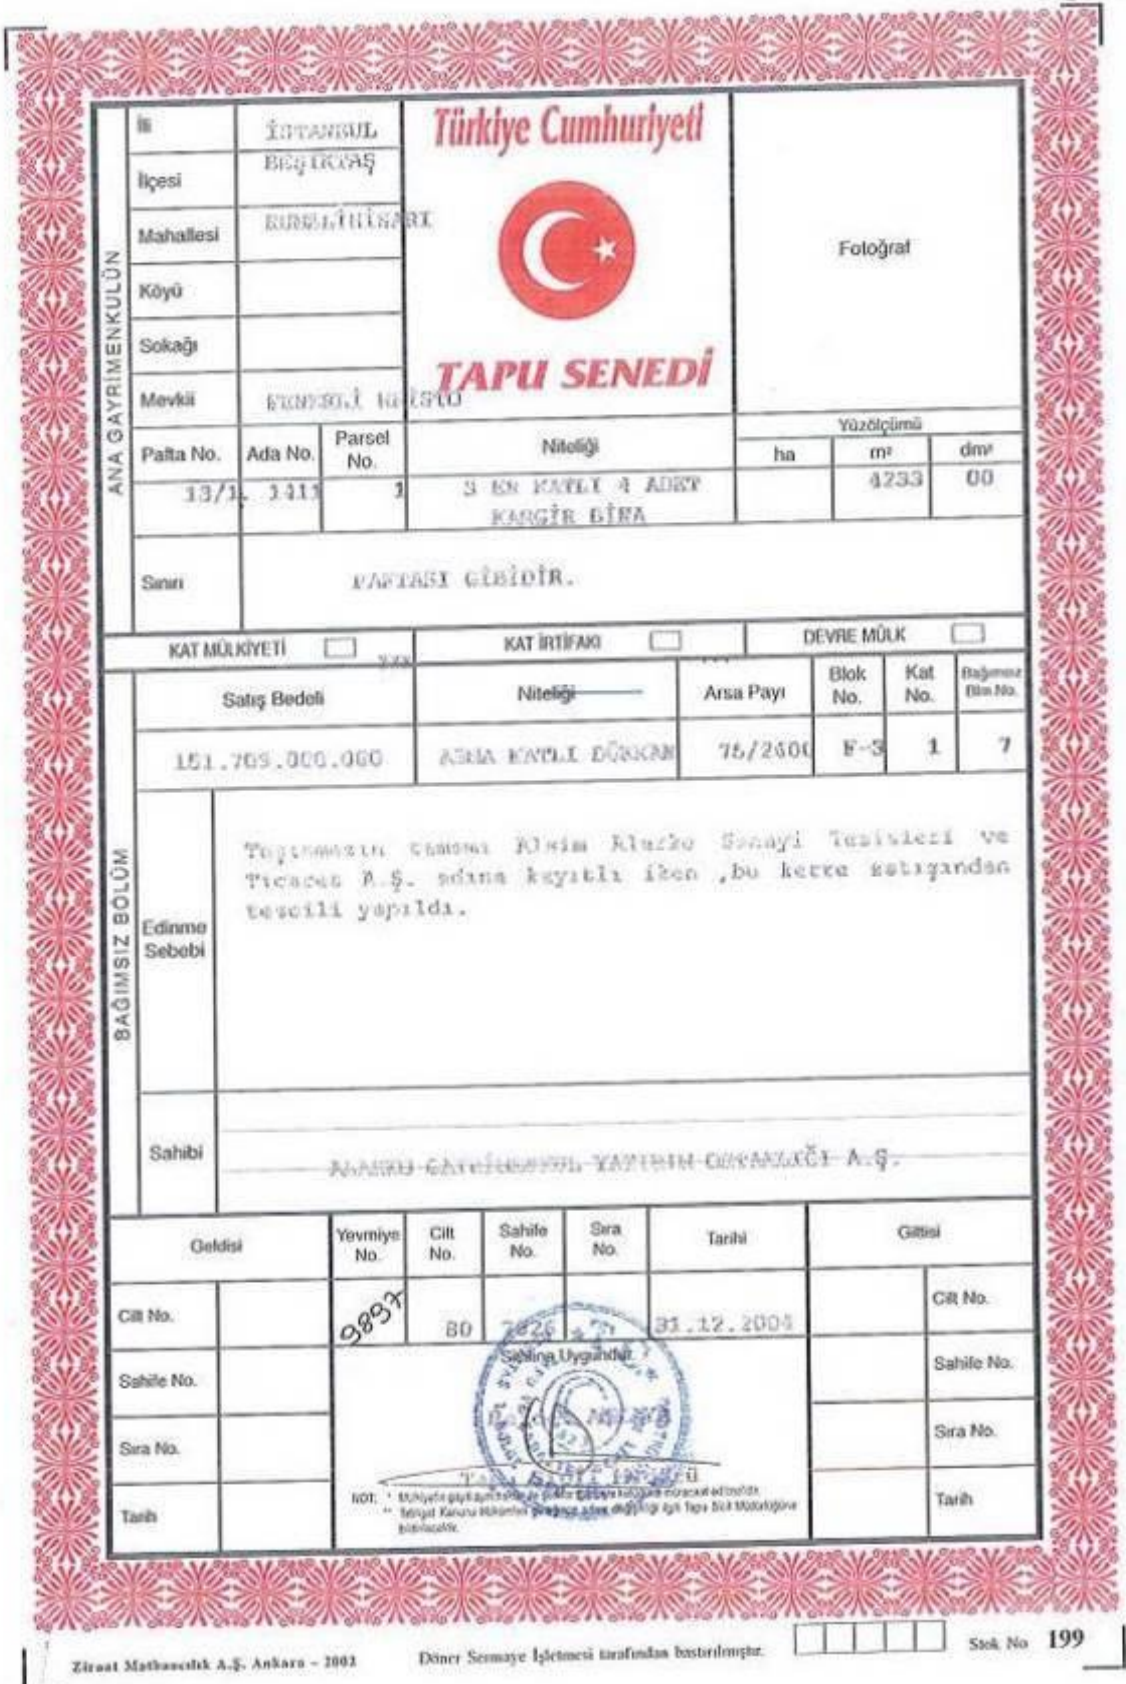 Türkiye Cumhuriyeti
TAPU SENEDİ
ANA GAYRİMENKULÜN
İli
İSTANBUL
İlçesi
BEŞİKTAŞ
Mahallesi
RUMELİHİSARI
Köyü
Sokağı
Mevkii
Fotoğraf
Pafta No.
Ada No.
Parsel
No.
Niteliği
Yüzölçümü
ha
m²
dm²
13/1
1411
1
3 ER KATLI 4 ADET
KARGİR BİNA
4233
00
Sınırı
PAFTASI GİBİDİR.
KAT MÜLKİYETİ
KAT İRTİFAKI
DEVRE MÜLK
BAĞIMSIZ BÖLÜM
Satış Bedeli
Niteliği
Arsa Payı
Blok
No.
Kat
No.
Bağımsız
Blm.No.
151.709.000.000
ASMA KATLI DÜKKAN
F-3
1
7
Edinme
Sebebi
Taşınmazın tamamı Alsim Alarko Sanayi Tesisleri ve
Ticaret A.Ş. adına kayıtlı iken ,bu kerre satışından
tescili yapıldı.
Sahibi
ALARKO GAYRİMENKUL YATIRIM ORTAKLIĞI A.Ş.
Geldisi
Yevmiye
No.
Cilt
No.
Sahife
No.
Sıra
No.
Tarihi
Gittisi
Cilt No.
9897
80
31.12.2004
Cilt No.
Siciline Uygundur.
Sahife No.
Sahife No.
Sıra No.
Sıra No.
Tarih
Tarih
NOT:
Ziraat Matbaacılık A.Ş. Ankara - 2002
Döner Sermaye İşletmesi tarafından bastırılmıştır.
Stok No 199